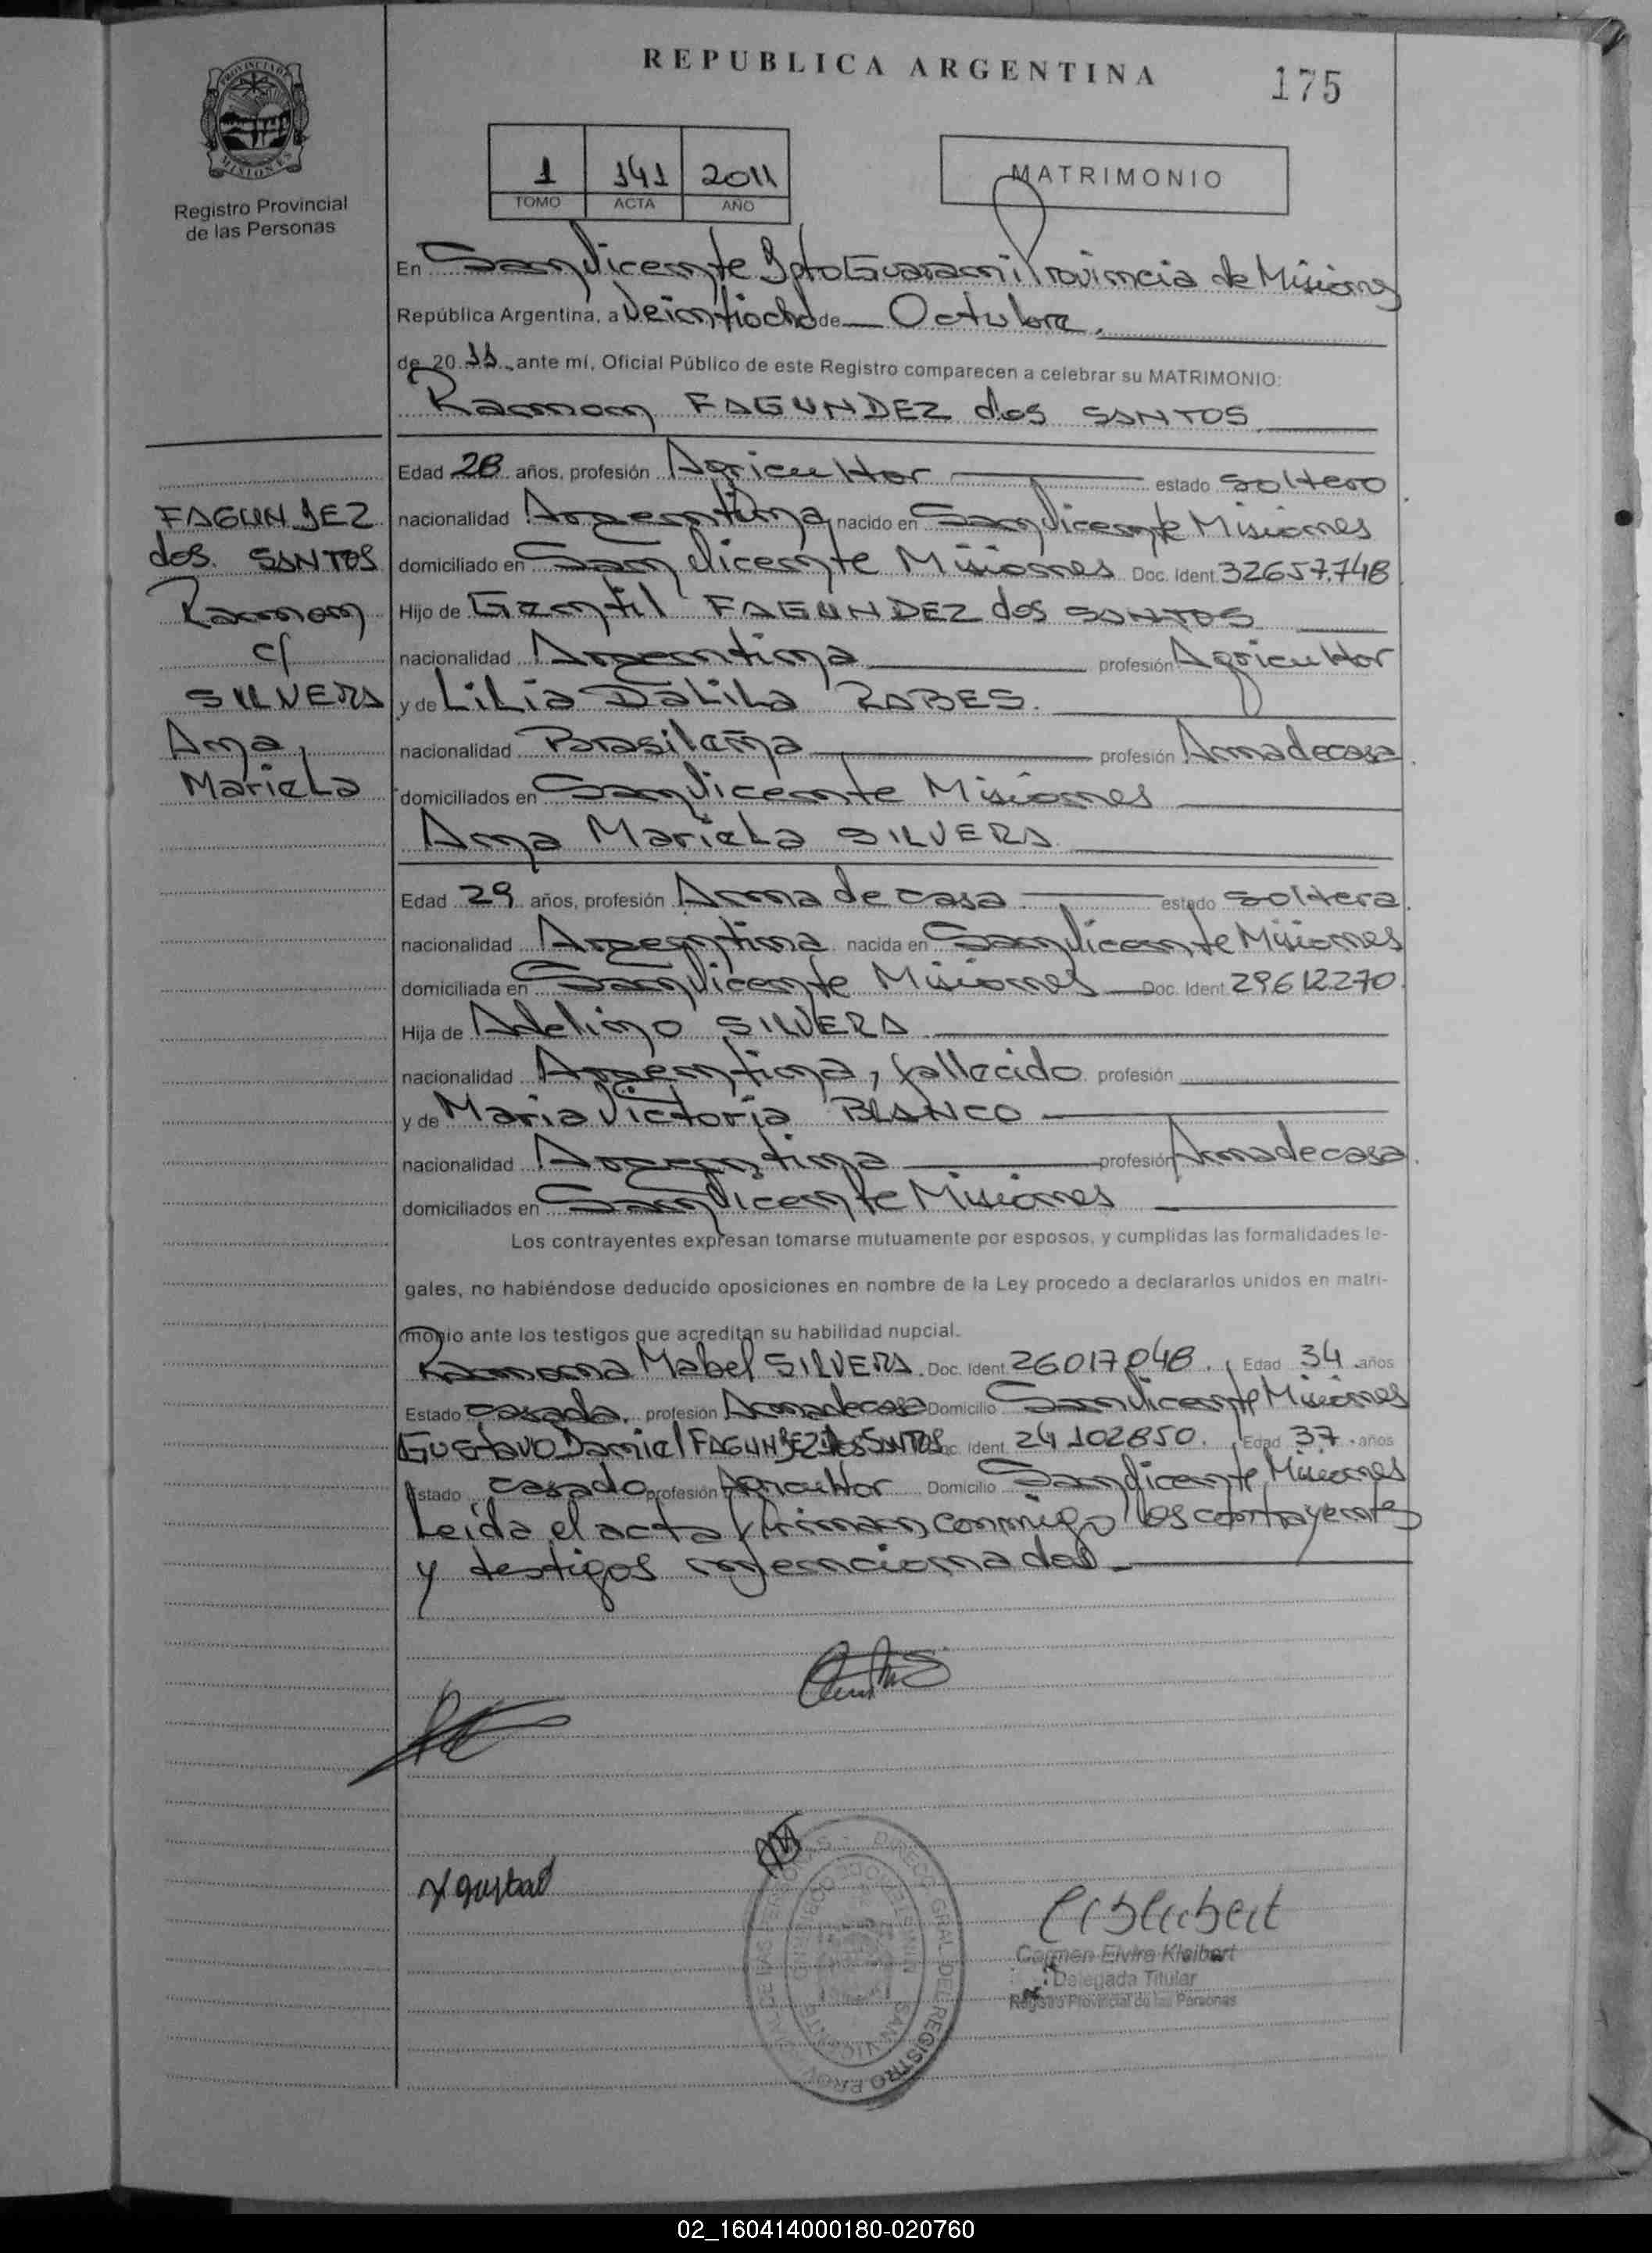 REPUBLICA ARGENTINA
175
PROVINCIA DE
MISIONES
Registro Provincial
de las Personas
1 141 2011
TOMO ACTA AÑO
MATRIMONIO
En San Vicente Dpto Guarani Provincia de Misiones
República Argentina, a Veintiocho de Octubre.
de 20 11 ante mí, Oficial Público de este Registro comparecen a celebrar su MATRIMONIO:
Ramon FAGUNDEZ dos SANTOS
Edad 28 años, profesión Agricultor estado soltero
nacionalidad Argentina nacido en San Vicente Misiones
domiciliado en San Vicente Misiones Doc. Ident. 32657.748
Hijo de Gentil FAGUNDEZ dos SANTOS
nacionalidad Argentina profesión Agricultor
y de LiLia DaLiLa RABES.
nacionalidad Brasileña profesión Ama de casa
domiciliados en San Vicente Misiones
Ana MarieLa SILVERA
Edad 29 años, profesión Ama de casa estado soltera
nacionalidad Argentina nacida en San Vicente Misiones
domiciliada en San Vicente Misiones Doc. Ident. 29612270
Hija de Adelino SILVERA
nacionalidad Argentina, fallecido profesión
y de Maria Victoria BLANCO
nacionalidad Argentina profesión Ama de casa
domiciliados en San Vicente Misiones
Los contrayentes expresan tomarse mutuamente por esposos, y cumplidas las formalidades le-
gales, no habiéndose deducido oposiciones en nombre de la Ley procedo a declararlos unidos en matri-
monio ante los testigos que acreditan su habilidad nupcial.
Ramona Mabel SILVERA. Doc. Ident. 26017048. Edad 34 años
Estado casada. profesión Ama de casa Domicilio San Vicente Misiones
Gustavo Daniel FAGUNDEZ dos SANTOS Doc. Ident. 24102850. Edad 37 años
Estado casado profesión Agricultor Domicilio San Vicente Misiones
Leida el acta firman conmigo los contrayentes
y testigos mencionados
FAGUNDEZ
dos. SANTOS
Ramon
c/
SILVERA
Ana
MarieLa
Carmen Elvira Kleibert
Delegada Titular
Registro Provincial de las Personas
02_160414000180-020760